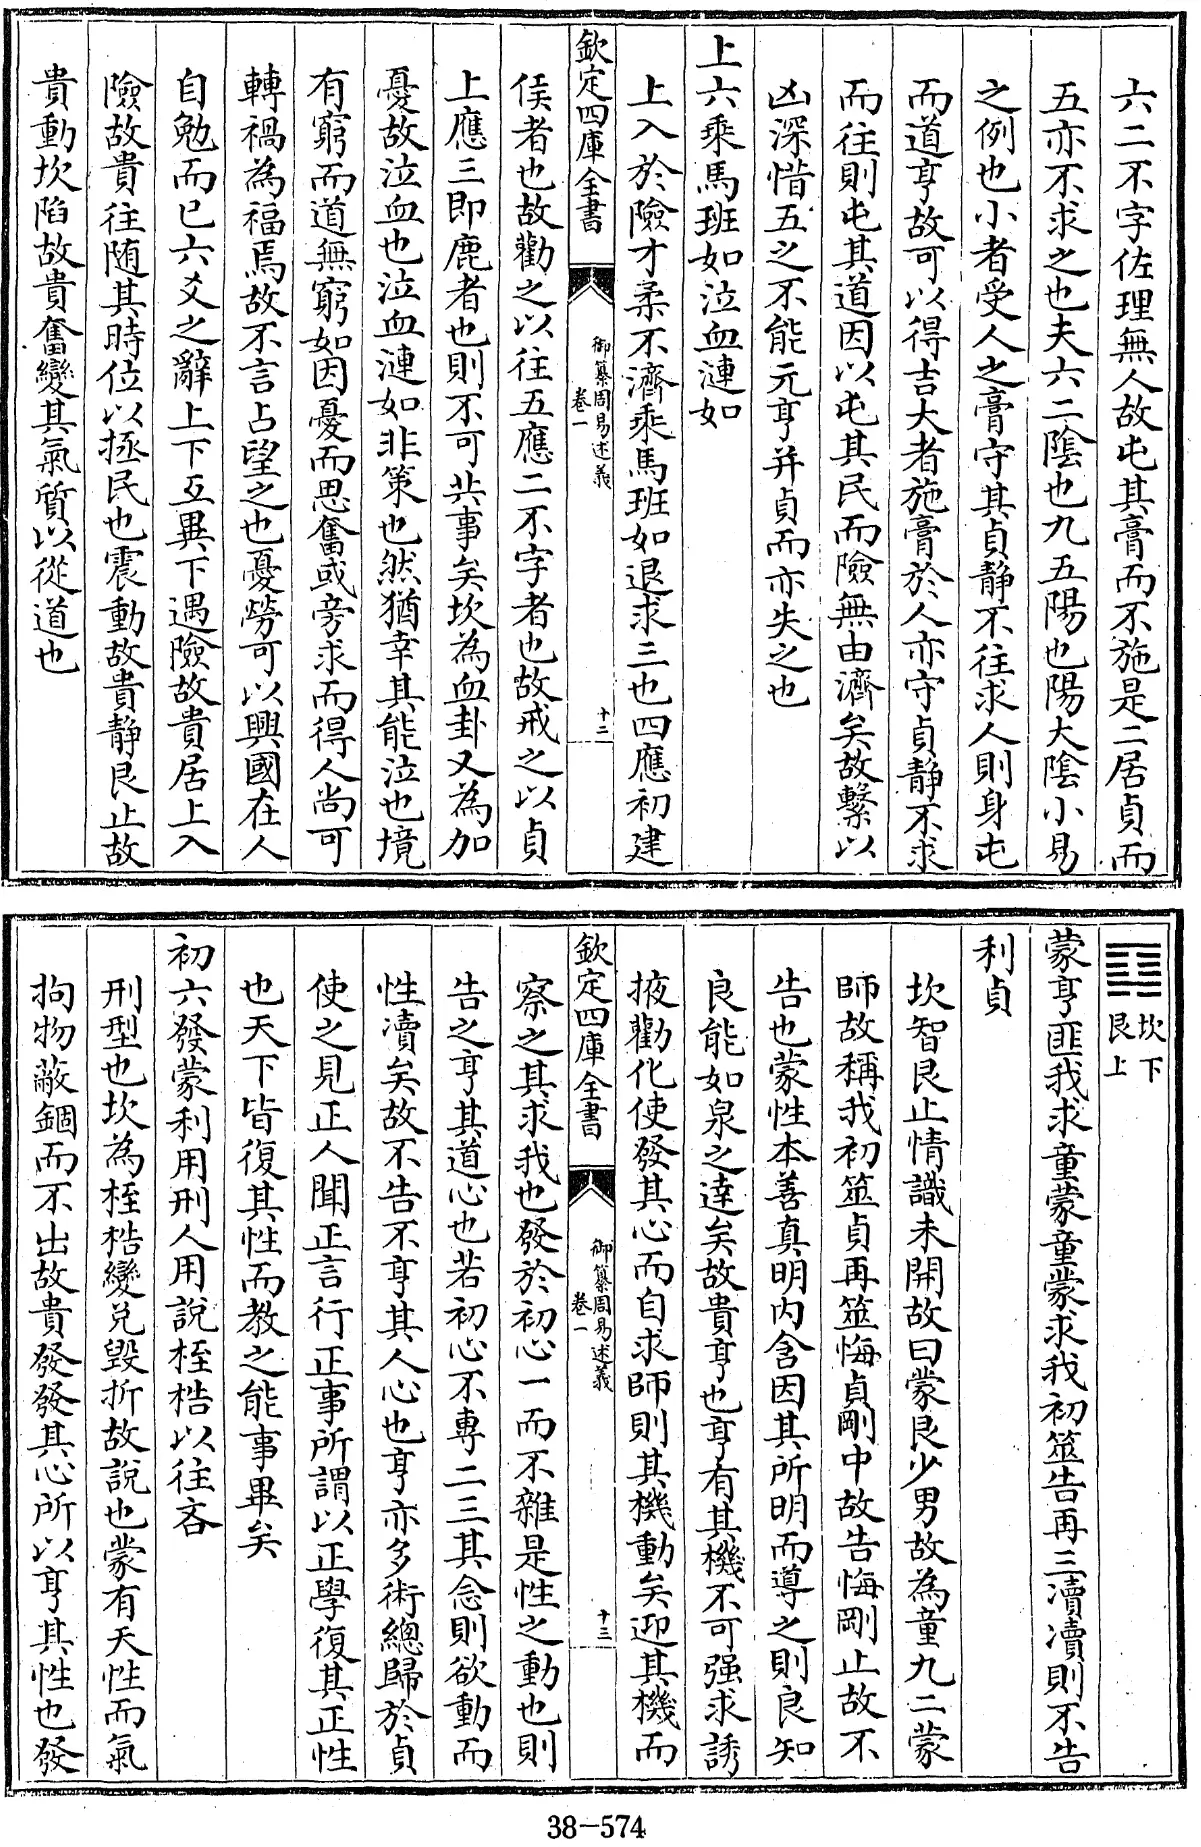 六二不字佐理無人故屯其膏而不施是二居貞而
五亦不求之也夫六二隂也九五陽也陽大隂小易
之例也小者受人之膏守其貞靜不往求人則身屯
而道亨故可以得吉大者施膏於人亦守貞靜不求
而往則屯其道因以屯其民而險無由濟矣故繫以
凶深惜五之不能元亨并貞而亦失之也
上六乘馬班如泣血漣如
上入於險才柔不濟乘馬班如退求三也四應初建
欽定四庫全書
御纂周易述義
卷一
十二
侯者也故勸之以往五應二不字者也故戒之以貞
上應三即鹿者也則不可共事矣坎為血卦又為加
憂故泣血也泣血漣如非策也然猶幸其能泣也境
有窮而道無窮如因憂而思奮或旁求而得人尚可
轉禍為福焉故不言占望之也憂勞可以興國在人
自勉而已六爻之辭上下互異下遇險故貴居上入
險故貴往隨其時位以拯民也震動故貴靜艮止故
貴動坎陷故貴奮變其氣質以從道也
坎下
艮上
蒙亨匪我求童蒙童蒙求我初筮告再三瀆瀆則不告
利貞
坎智艮止情識未開故曰蒙艮少男故為童九二蒙
師故稱我初筮貞再筮悔貞剛中故告悔剛止故不
告也蒙性本善真明内含因其所明而導之則良知
良能如泉之達矣故貴亨也亨有其機不可强求誘
掖勸化使發其心而自求師則其機動矣迎其機而
欽定四庫全書
御纂周易述義
卷一
十三
察之其求我也發於初心一而不雜是性之動也則
告之亨其道心也若初心不專二三其念則欲動而
性瀆矣故不告不亨其人心也亨亦多術總歸於貞
使之見正人聞正言行正事所謂以正學復其正性
也天下皆復其性而教之能事畢矣
初六發蒙利用刑人用說桎梏以往吝
刑型也坎為桎梏變兌毀折故說也蒙有天性而氣
拘物蔽錮而不出故貴發發其心所以亨其性也發
38-574